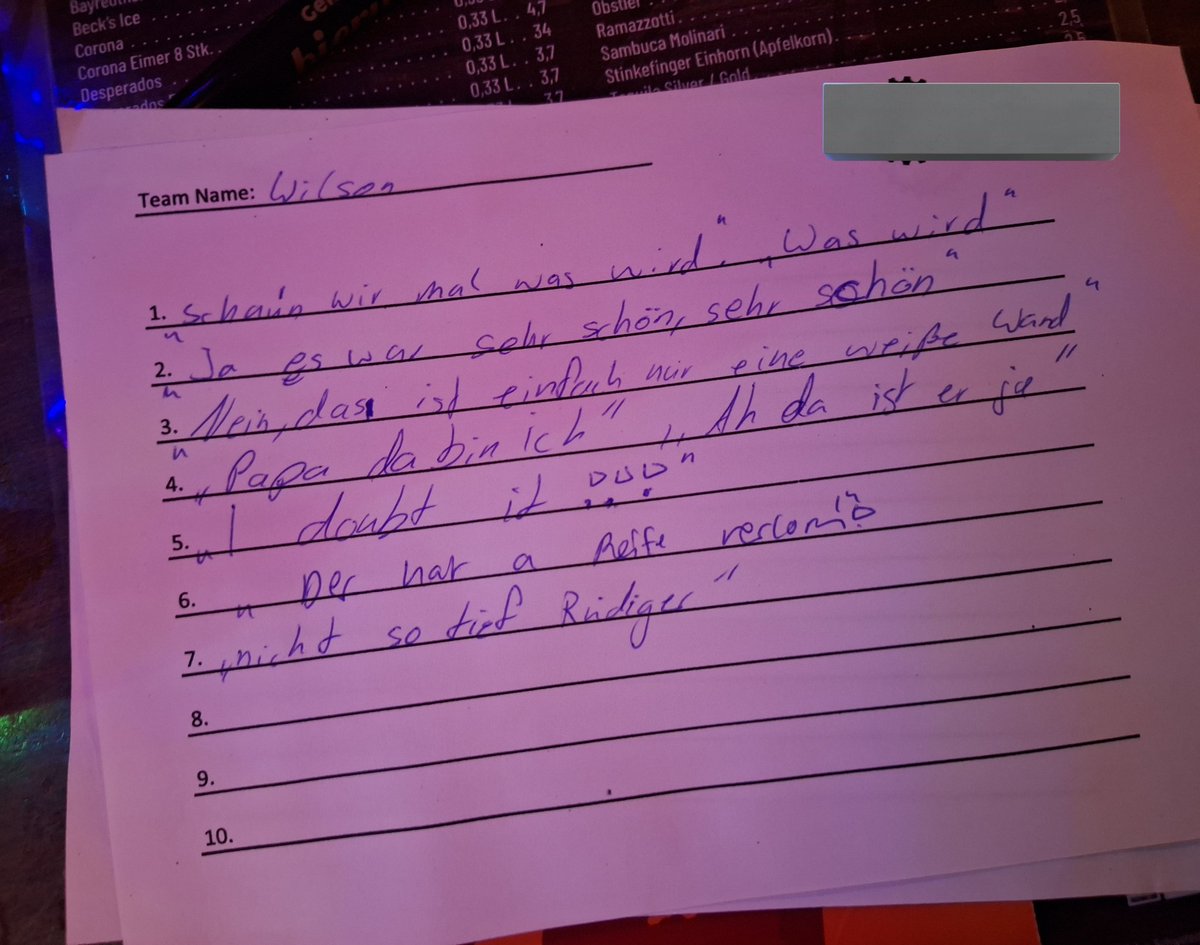 Beck's Ice
Corona
0,33 L . . 4,7
Corona Eimer 8 Stk. . . . 0,33 L . . 34
Desperados . . . 0,33 L . . 3,7
0,33 L . . 3,7
3,7
Obstler
Ramazzotti
Sambuca Molinari . . . 2,5
Stinkefinger Einhorn (Apfelkorn) . . .
Silver / Gold
Team Name: Wilson
1. „Schau'n wir mal was wird". „Was wird"
2. „Ja es war sehr schön, sehr schön"
3. „Nein, das ist einfach nur eine weiße Wand"
4. „Papa da bin ich" „Ah da ist er ja"
5. „I doubt it ..."
6. „Der hat a Reife
7. „nicht so tief Rüdiger"
8.
9.
10.